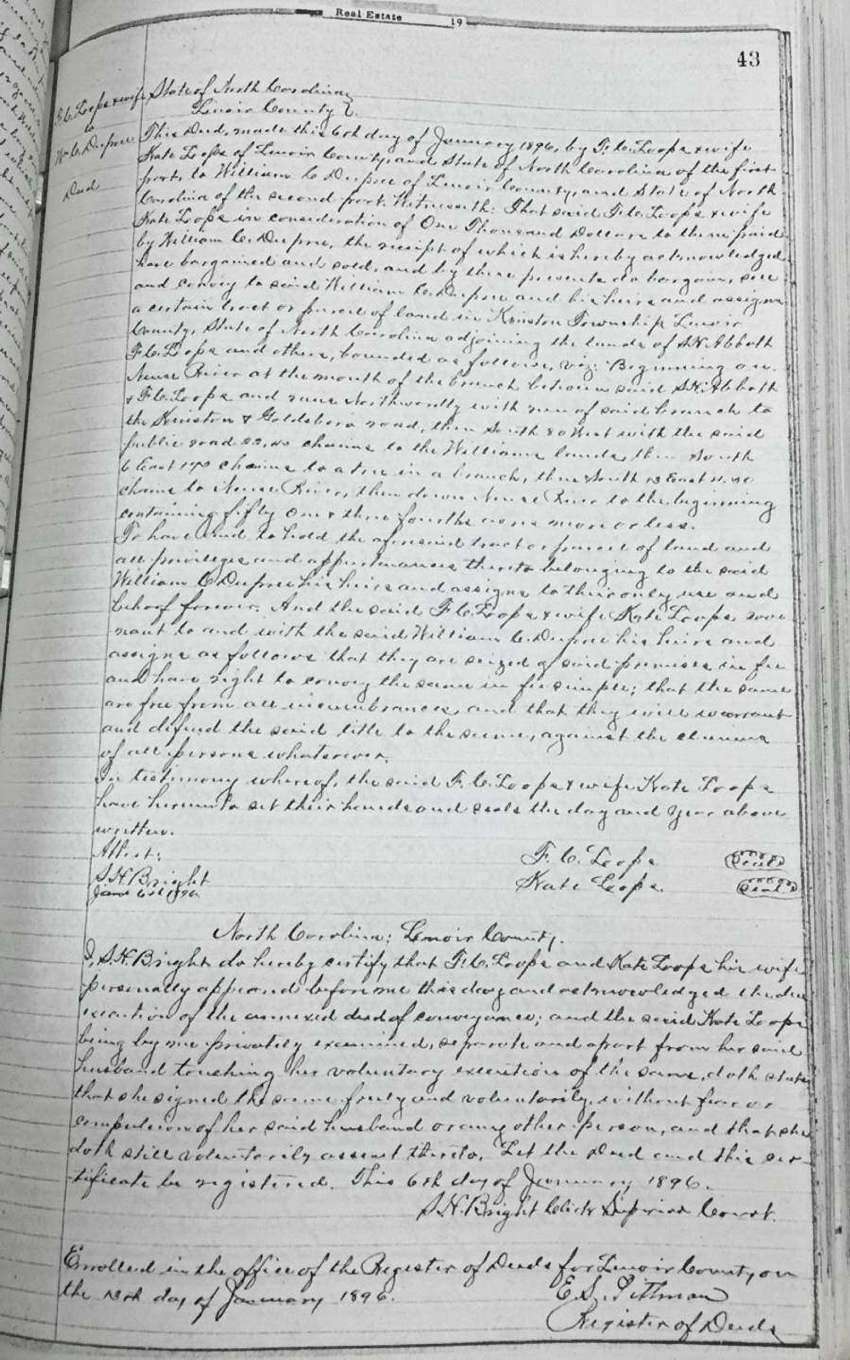 Real Estate 19
43
F.C. Loops & wife
to
Wm C. Dupree
Deed
State of North Carolina
Lenoir County
This Deed, made this 6th day of January 1896, by F.C. Loops & wife
Kate Loops of Lenoir County, and State of North Carolina of the first
part, to William C. Dupree of Lenoir County, and State of North
Carolina of the second part. Witnesseth: That said F.C. Loops & wife
Kate Loops in consideration of One Thousand Dollars to them paid
by William C. Dupree, the receipt of which is hereby acknowledged
have bargained and sold, and by these presents do bargain, sell
and convey to said William C. Dupree and his heirs and assigns
a certain tract or parcel of land in Kinston Township Lenoir
County, State of North Carolina adjoining the lands of S.H. Abbott
F.C. Loops and others, bounded as follows, viz: Beginning on
Neuse River at the mouth of the branch between said S.H. Abbott
& F.C. Loops and runs Northwardly with run of said branch to
the Kinston & Goldsboro road, then South 80 West with the said
public road chains to the Williams lands, then South
6 East chains to a tree in a branch, then South East
chains to Neuse River, then down Neuse River to the beginning
containing fifty One & three fourths acres more or less.
To have and to hold the aforesaid tract or parcel of land and
all privileges and appurtenances thereto belonging to the said
William C. Dupree his heirs and assigns to their only use and
behoof forever. And the said F.C. Loops & wife Kate Loops cove-
nant to and with the said William C. Dupree his heirs and
assigns as follows that they are seized of said premises in fee
and have right to convey the same in fee simple; that the same
are free from all incumbrances, and that they will warrant
and defend the said title to the same, against the claims
of all persons whatsoever.
In testimony whereof, the said F.C. Loops & wife Kate Loops
have hereunto set their hands and seals the day and year above
written.
Attest:
S.H. Bright
Jany 6th 1896
F.C. Loops (Seal)
Kate Loops. (Seal)
North Carolina: Lenoir County.
I, S.H. Bright do hereby certify that F.C. Loops and Kate Loops his wife
personally appeared before me this day and acknowledged the due
execution of the annexed deed of conveyance; and the said Kate Loops
being by me privately examined, separate and apart from her said
husband touching her voluntary execution of the same, doth state
that she signed the same freely and voluntarily, without fear or
compulsion of her said husband or any other person, and that she
doth still voluntarily assent thereto. Let the Deed and this cer-
tificate be registered. This 6th day of January 1896.
S.H. Bright Clerk Superior Court.
Enrolled in the office of the Register of Deeds for Lenoir County, on
the day of January 1896.
E.S. Pittman
Register of Deeds